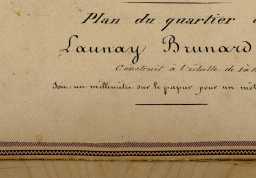 Plan du quartier d
Launay Brunard
Construit à l'échelle de 1 à
Soit un millimètre sur le papier pour un mèt